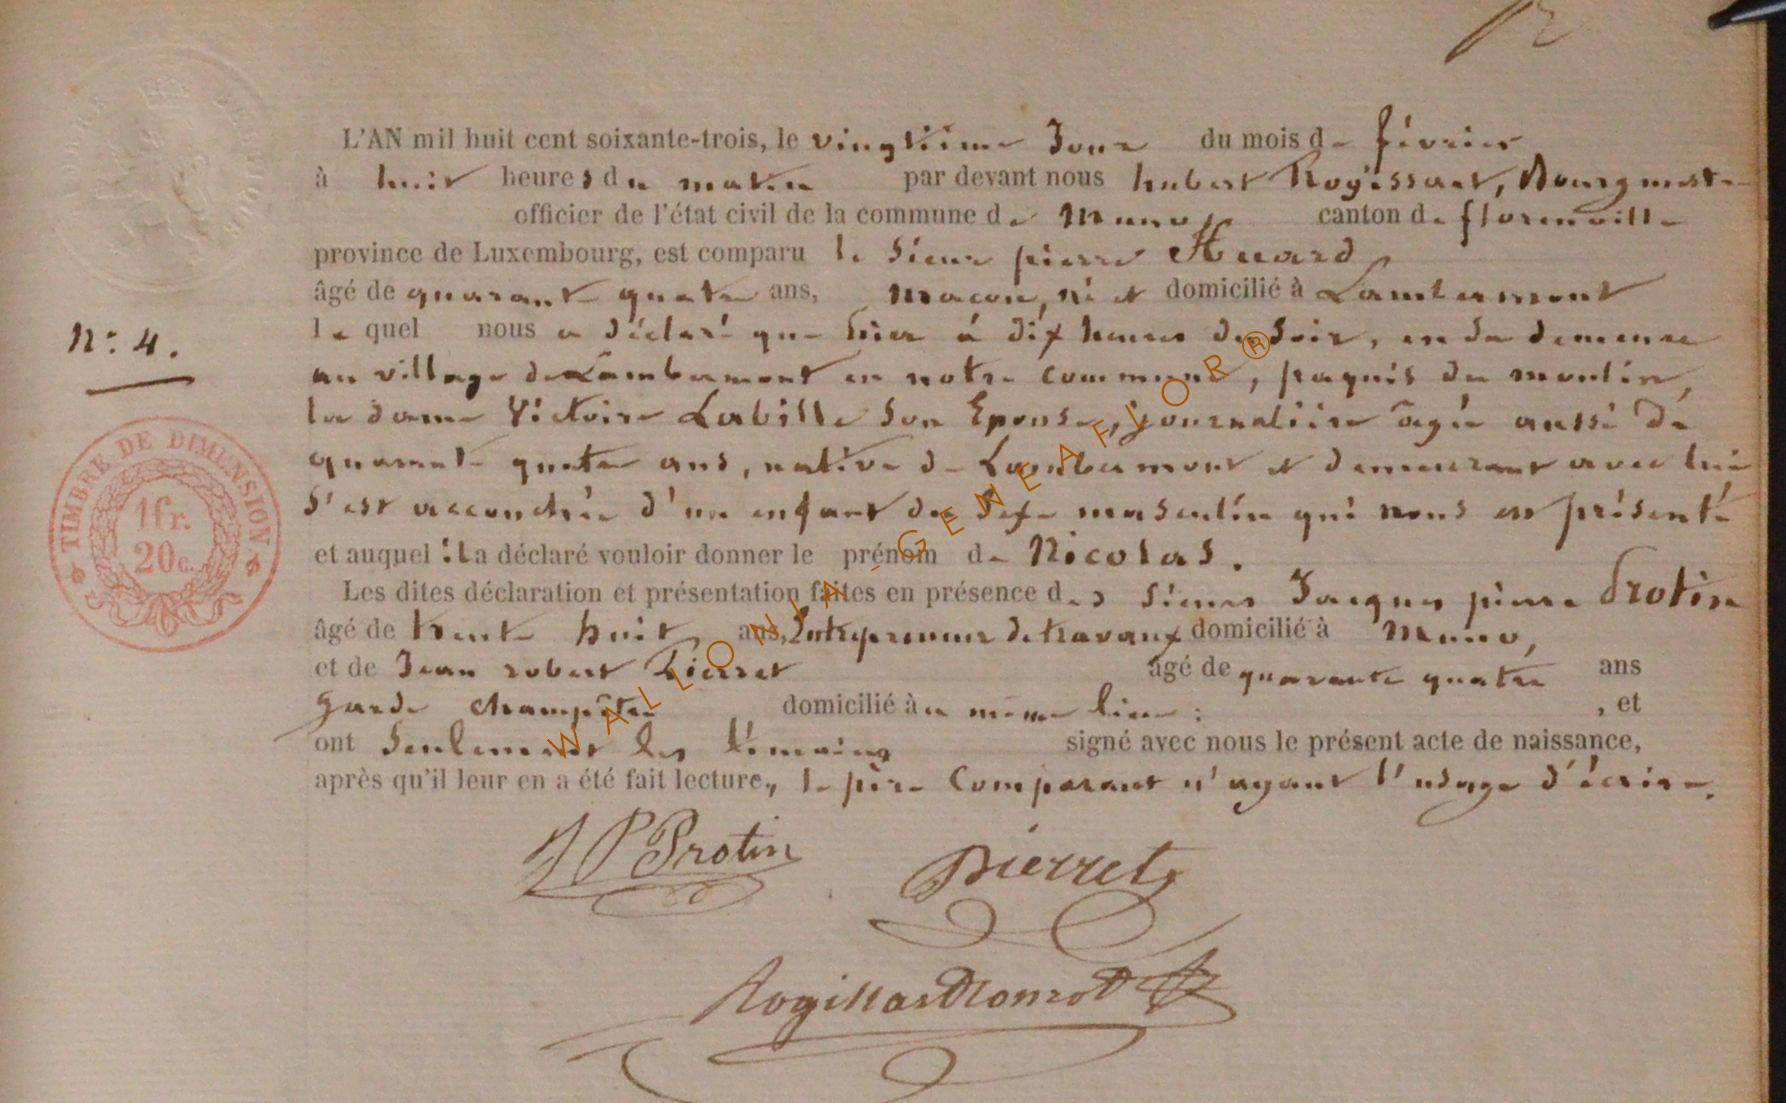 L'AN mil huit cent soixante-trois, le vingtième Jour du mois de février
à huit heures du matin par devant nous hubert Rogissart, Bourgmestre
officier de l'état civil de la commune de Muno, canton de florenville
province de Luxembourg, est comparu le Sieur pierre Huard,
âgé de quarante quatre ans, macon, né et domicilié à Lambermont
le quel nous a déclaré que hier à dix heures du Soir, en sa demeure
N°. 4.
au village de Lambermont en notre commune, paquis du moulin,
la dame Victoire Labille Son Epouse, journalière âgée aussi de
quarante quatre ans, native de Lambermont et demeurant avec lui
S'est accouchée d'un enfant du Sexe masculin qui nous est présenté
et auquel il a déclaré vouloir donner le prénom de Nicolas.
TIMBRE DE DIMENSION.
1 fr.
20 c.
Les dites déclaration et présentation faites en présence des Sieurs Jacques pierre Protin
âgé de trente huit ans, Entrepreneur de travaux domicilié à Muno,
et de Jean robert Pierret âgé de quarante quatre ans
garde champêtre domicilié à u même lieu : , et
ont Seulement les témoins signé avec nous le présent acte de naissance,
après qu'il leur en a été fait lecture, le père Comparant n'ayant l'usage d'écrire.
JP Protin
Pierret
WALLONIA - GENEAFLOR®